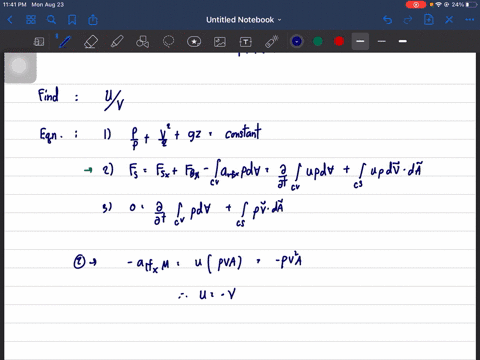 11:41 PM Mon Aug 23
24%
Untitled Notebook
Find : U/V
Eqn. : 1) P/ρ + V²/2 + gz = constant
→ 2) Fs = Fsx + FBx - ∫cv arfx ρd∀ = ∂/∂t ∫cv uρd∀ + ∫cs uρV⃗·dA⃗
3) 0 = ∂/∂t ∫cv ρd∀ + ∫cs ρV⃗·dA⃗
② → -arfx M = u (ρVA) = -ρV²A
∴ u = -V